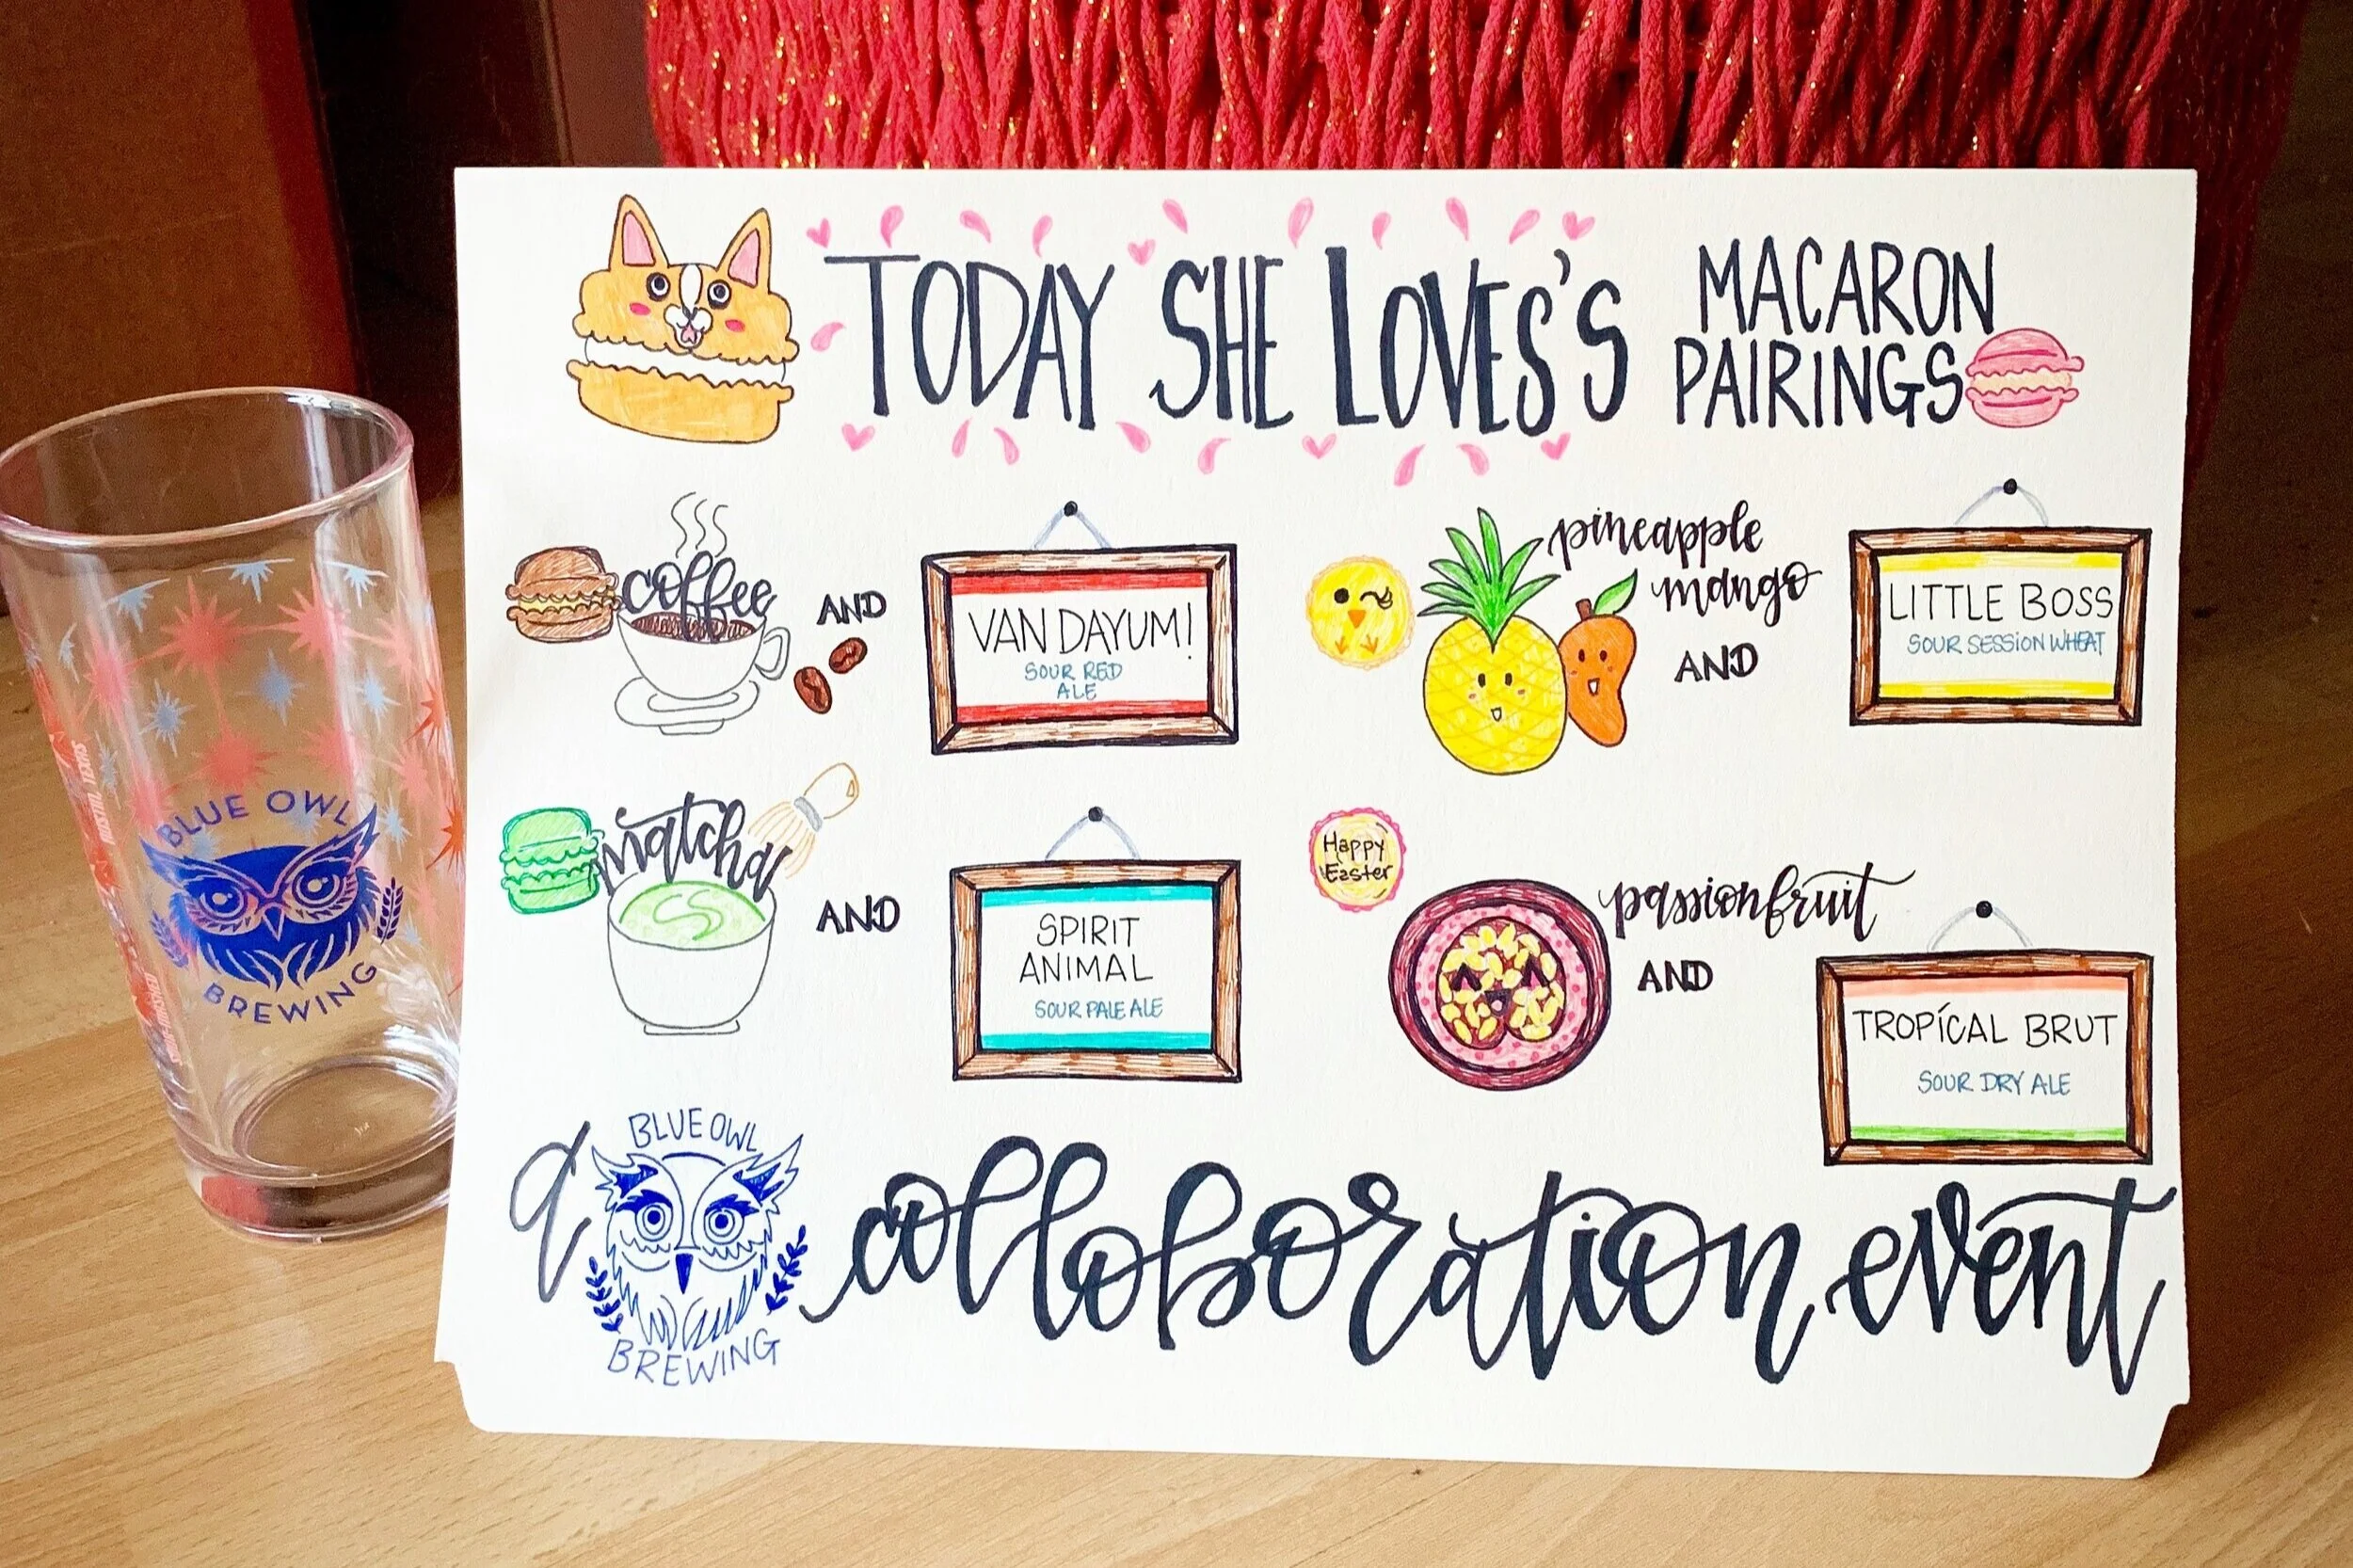 TODAY SHE LOVES'S
MACARON
PAIRINGS
coffee
AND
VAN DAYUM!
SOUR RED
ALE
pineapple
mango
AND
LITTLE BOSS
SOUR SESSION WHEAT
matcha
AND
SPIRIT
ANIMAL
SOUR PALE ALE
Happy
Easter
passionfruit
AND
TROPÍCAL BRUT
SOUR DRY ALE
a
BLUE OWL
BREWING
collaboration event
BLUE OWL
BREWING
AUSTIN, TEXAS